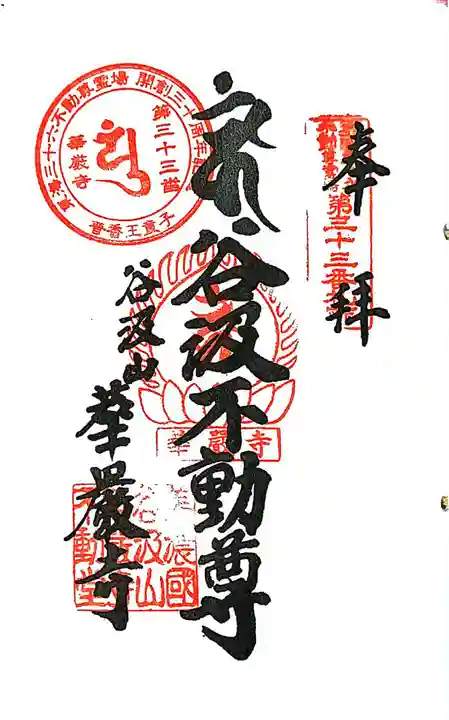 奉拝
第三十三番
谷汲不動尊
谷汲山
華厳寺
華嚴寺
東海三十六不動尊霊場 開創三十周年記念
第三十三番
華厳寺
香王童子
美濃國
谷汲山
不動堂